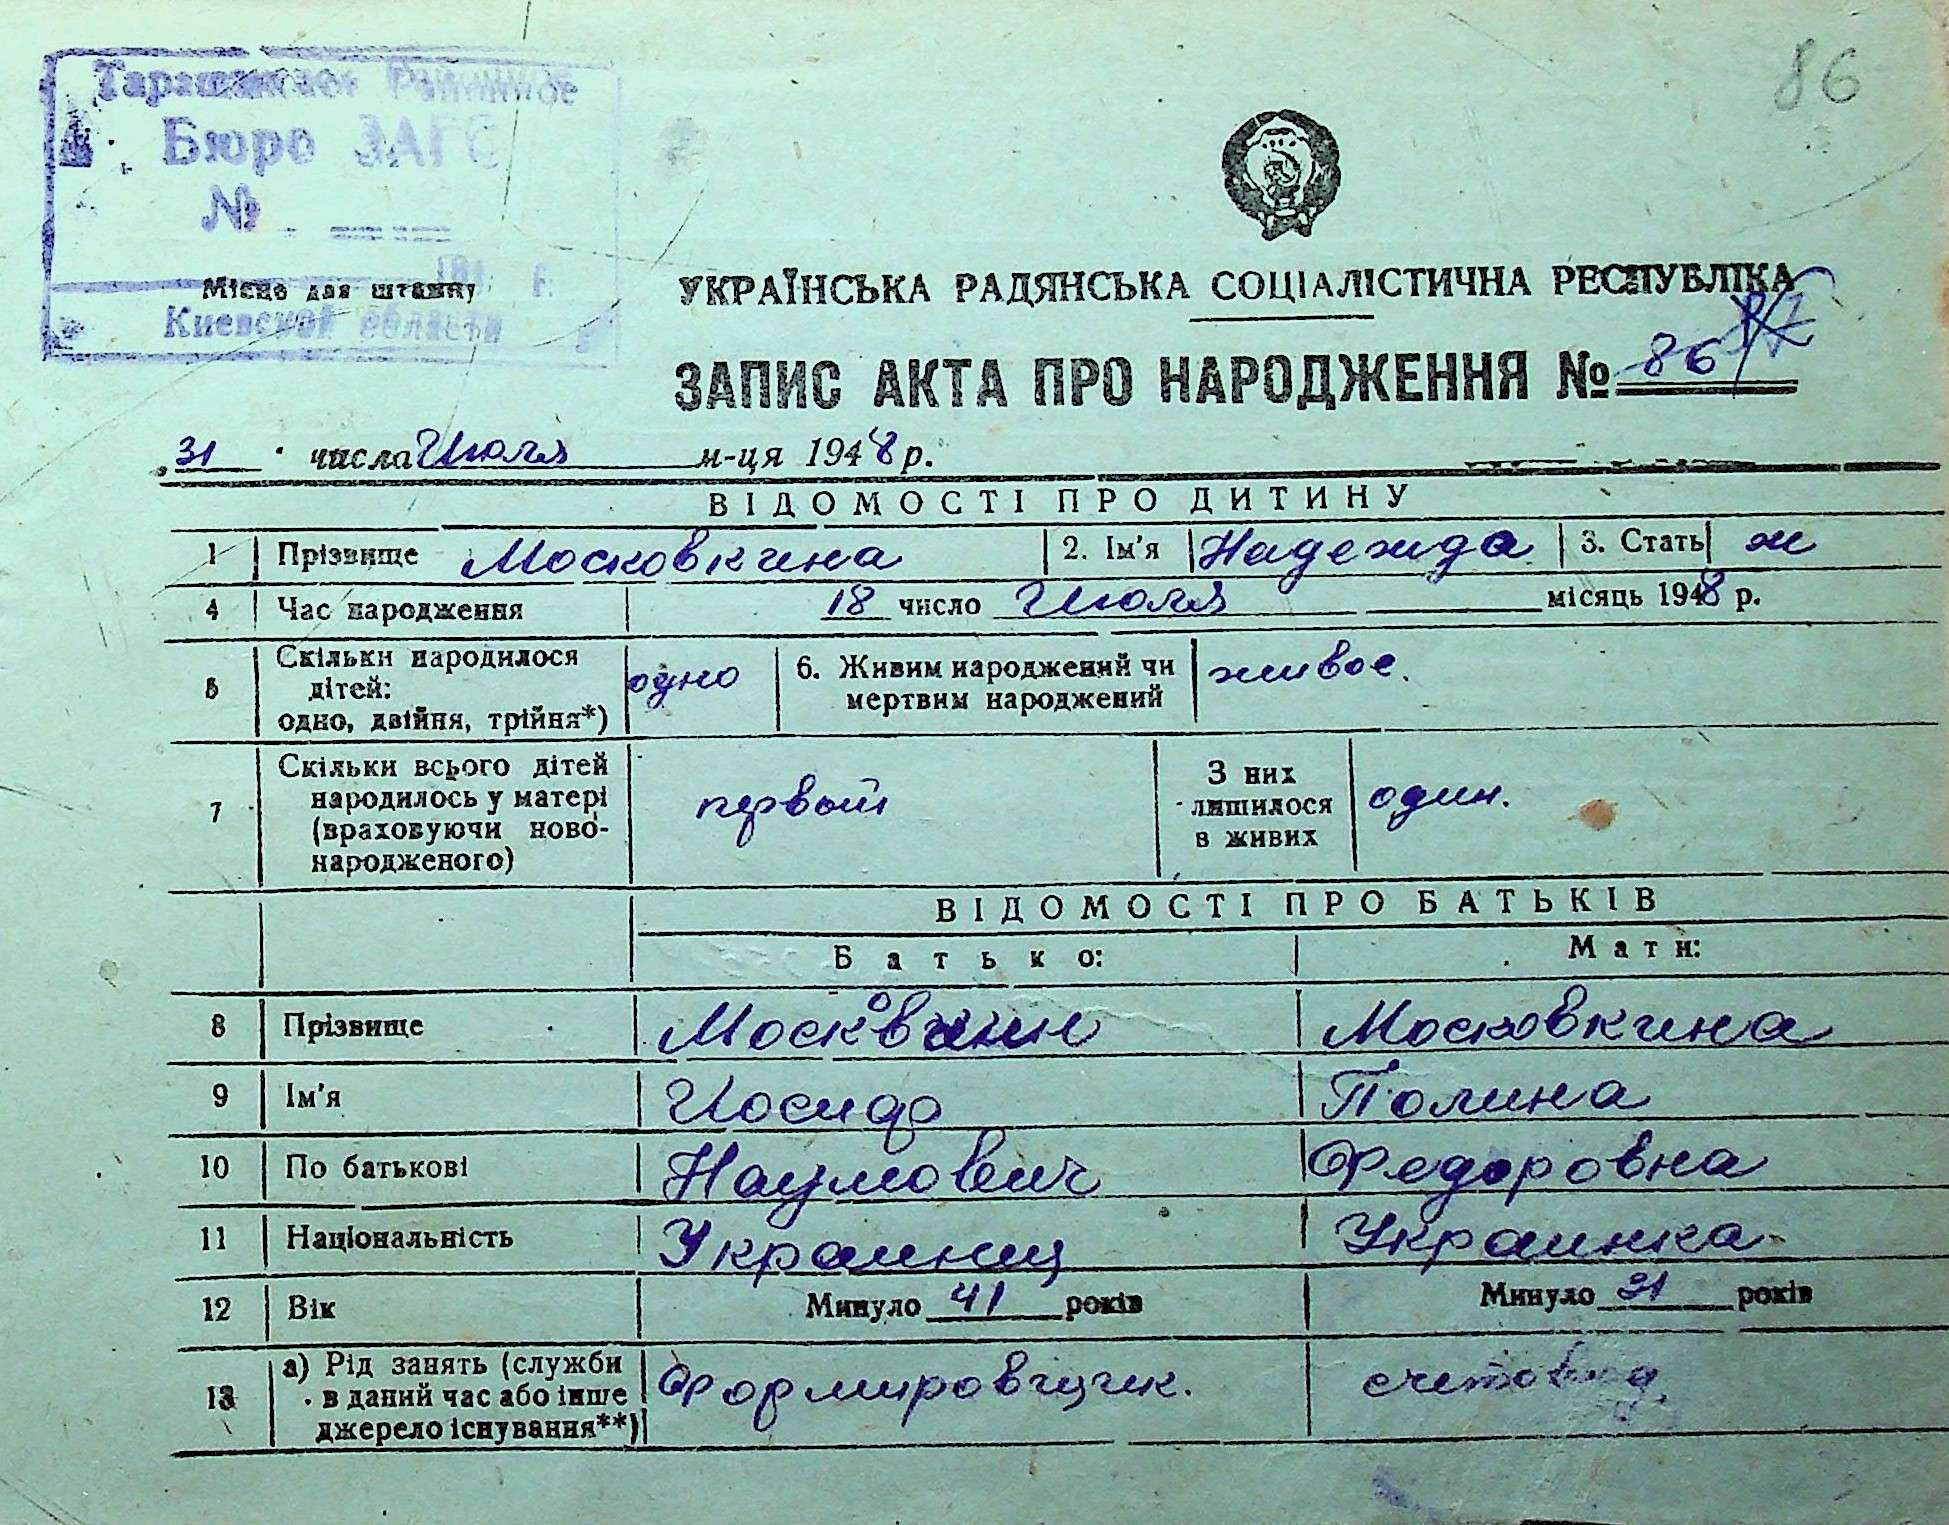 86
Таращанское Районное
Бюро ЗАГС
№
Місце для штампу
Киевской области
УКРАЇНСЬКА РАДЯНСЬКА СОЦІАЛІСТИЧНА РЕСПУБЛІКА
ЗАПИС АКТА ПРО НАРОДЖЕННЯ № 86
31 числа Июля м-ця 1948 р.
ВІДОМОСТІ ПРО ДИТИНУ
1 Прізвище Московкина 2. Ім'я Надежда 3. Стать ж
4 Час народження 18 число Июля місяць 1948 р.
5 Скільки народилося дітей: одно, двійня, трійня*) одно 6. Живим народжений чи мертвим народжений живое.
7 Скільки всього дітей народилось у матері (враховуючи новонародженого) первый З них лишилося в живих один.
ВІДОМОСТІ ПРО БАТЬКІВ
Батько: Мати:
8 Прізвище Московкин Московкина
9 Ім'я Иосиф Полина
10 По батькові Наумович Федоровна
11 Національність Украинец Украинка
12 Вік Минуло 41 років Минуло 31 років
13 а) Рід занять (служби в даний час або інше джерело існування**) Формировщик. счетовод